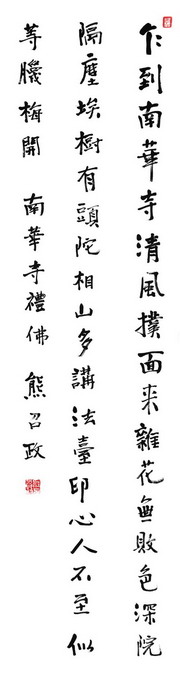 乍到南華寺清風撲面来雜花無敗色深院
隔塵埃樹有頭陀相山多講法臺印心人不至似
等臘梅開 南華寺禮佛 熊召政